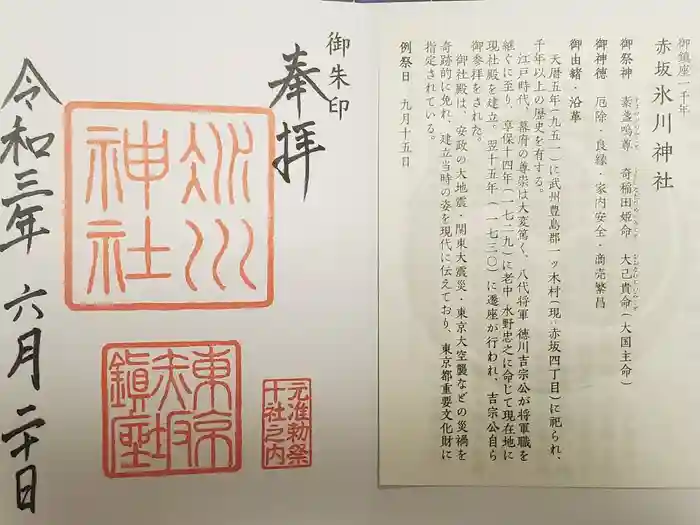 御鎮座一千年
赤坂氷川神社
御祭神 素盞嗚尊 奇稲田姫命 大己貴命(大国主命)
御神徳 厄除・良縁・家内安全・商売繁昌
御由緒・沿革
天暦五年(九五一)に武州豊島郡一ッ木村(現・赤坂四丁目)に祀られ、
千年以上の歴史を有する。
江戸時代、幕府の尊崇は大変篤く、八代将軍 徳川吉宗公が将軍職を
継ぐに至り、享保十四年(一七二九)に老中 水野忠之に命じて現在地に
現社殿を建立。翌十五年(一七三〇)に遷座が行われ、吉宗公自ら
御参拝をされた。
御社殿は、安政の大地震・関東大震災・東京大空襲などの災禍を
奇跡的に免れ、建立当時の姿を現代に伝えており、東京都重要文化財に
指定されている。
例祭日 九月十五日
御朱印
奉拝
氷川
神社
東京
赤坂
鎮座
元准勅祭
十社之内
令和三年 六月 二十日